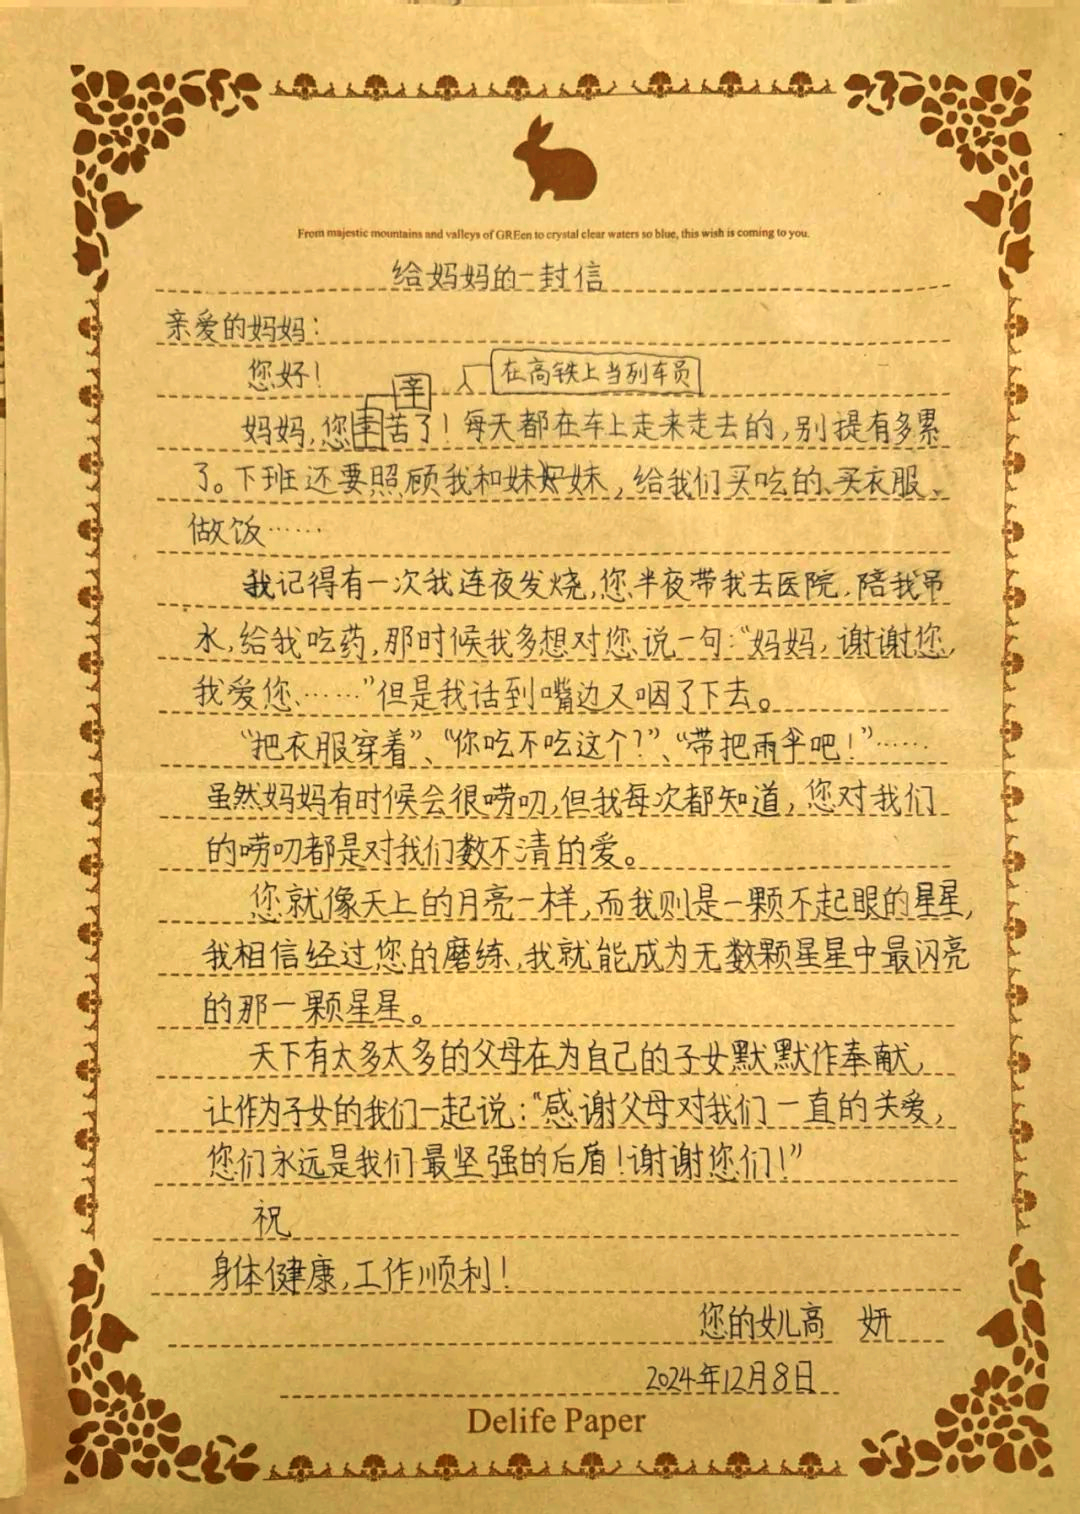 From majestic mountains and valleys of GREen to crystal clear waters so blue, this wish is coming to you.
给妈妈的一封信
亲爱的妈妈：
您好！
在高铁上当列车员
辛
妈妈，您幸苦了！每天都在车上走来走去的，别提有多累
了。下班还要照顾我和妹妹，给我们买吃的、买衣服、
做饭……
我记得有一次我连夜发烧，您半夜带我去医院，陪我吊
水，给我吃药，那时候我多想对您说一句：“妈妈，谢谢您，
我爱您……”但是我话到嘴边又咽了下去。
“把衣服穿着”、“你吃不吃这个？”、“带把雨伞吧！”……
虽然妈妈有时候会很唠叨，但我每次都知道，您对我们
的唠叨都是对我们数不清的爱。
您就像天上的月亮一样，而我则是一颗不起眼的星星，
我相信经过您的磨练，我就能成为无数颗星星中最闪亮
的那一颗星星。
天下有太多太多的父母在为自己的子女默默作奉献，
让作为子女的我们一起说：“感谢父母对我们一直的关爱，
您们永远是我们最坚强的后盾！谢谢您们！”
祝
身体健康，工作顺利！
您的女儿高 妍
2024年12月8日
Delife Paper